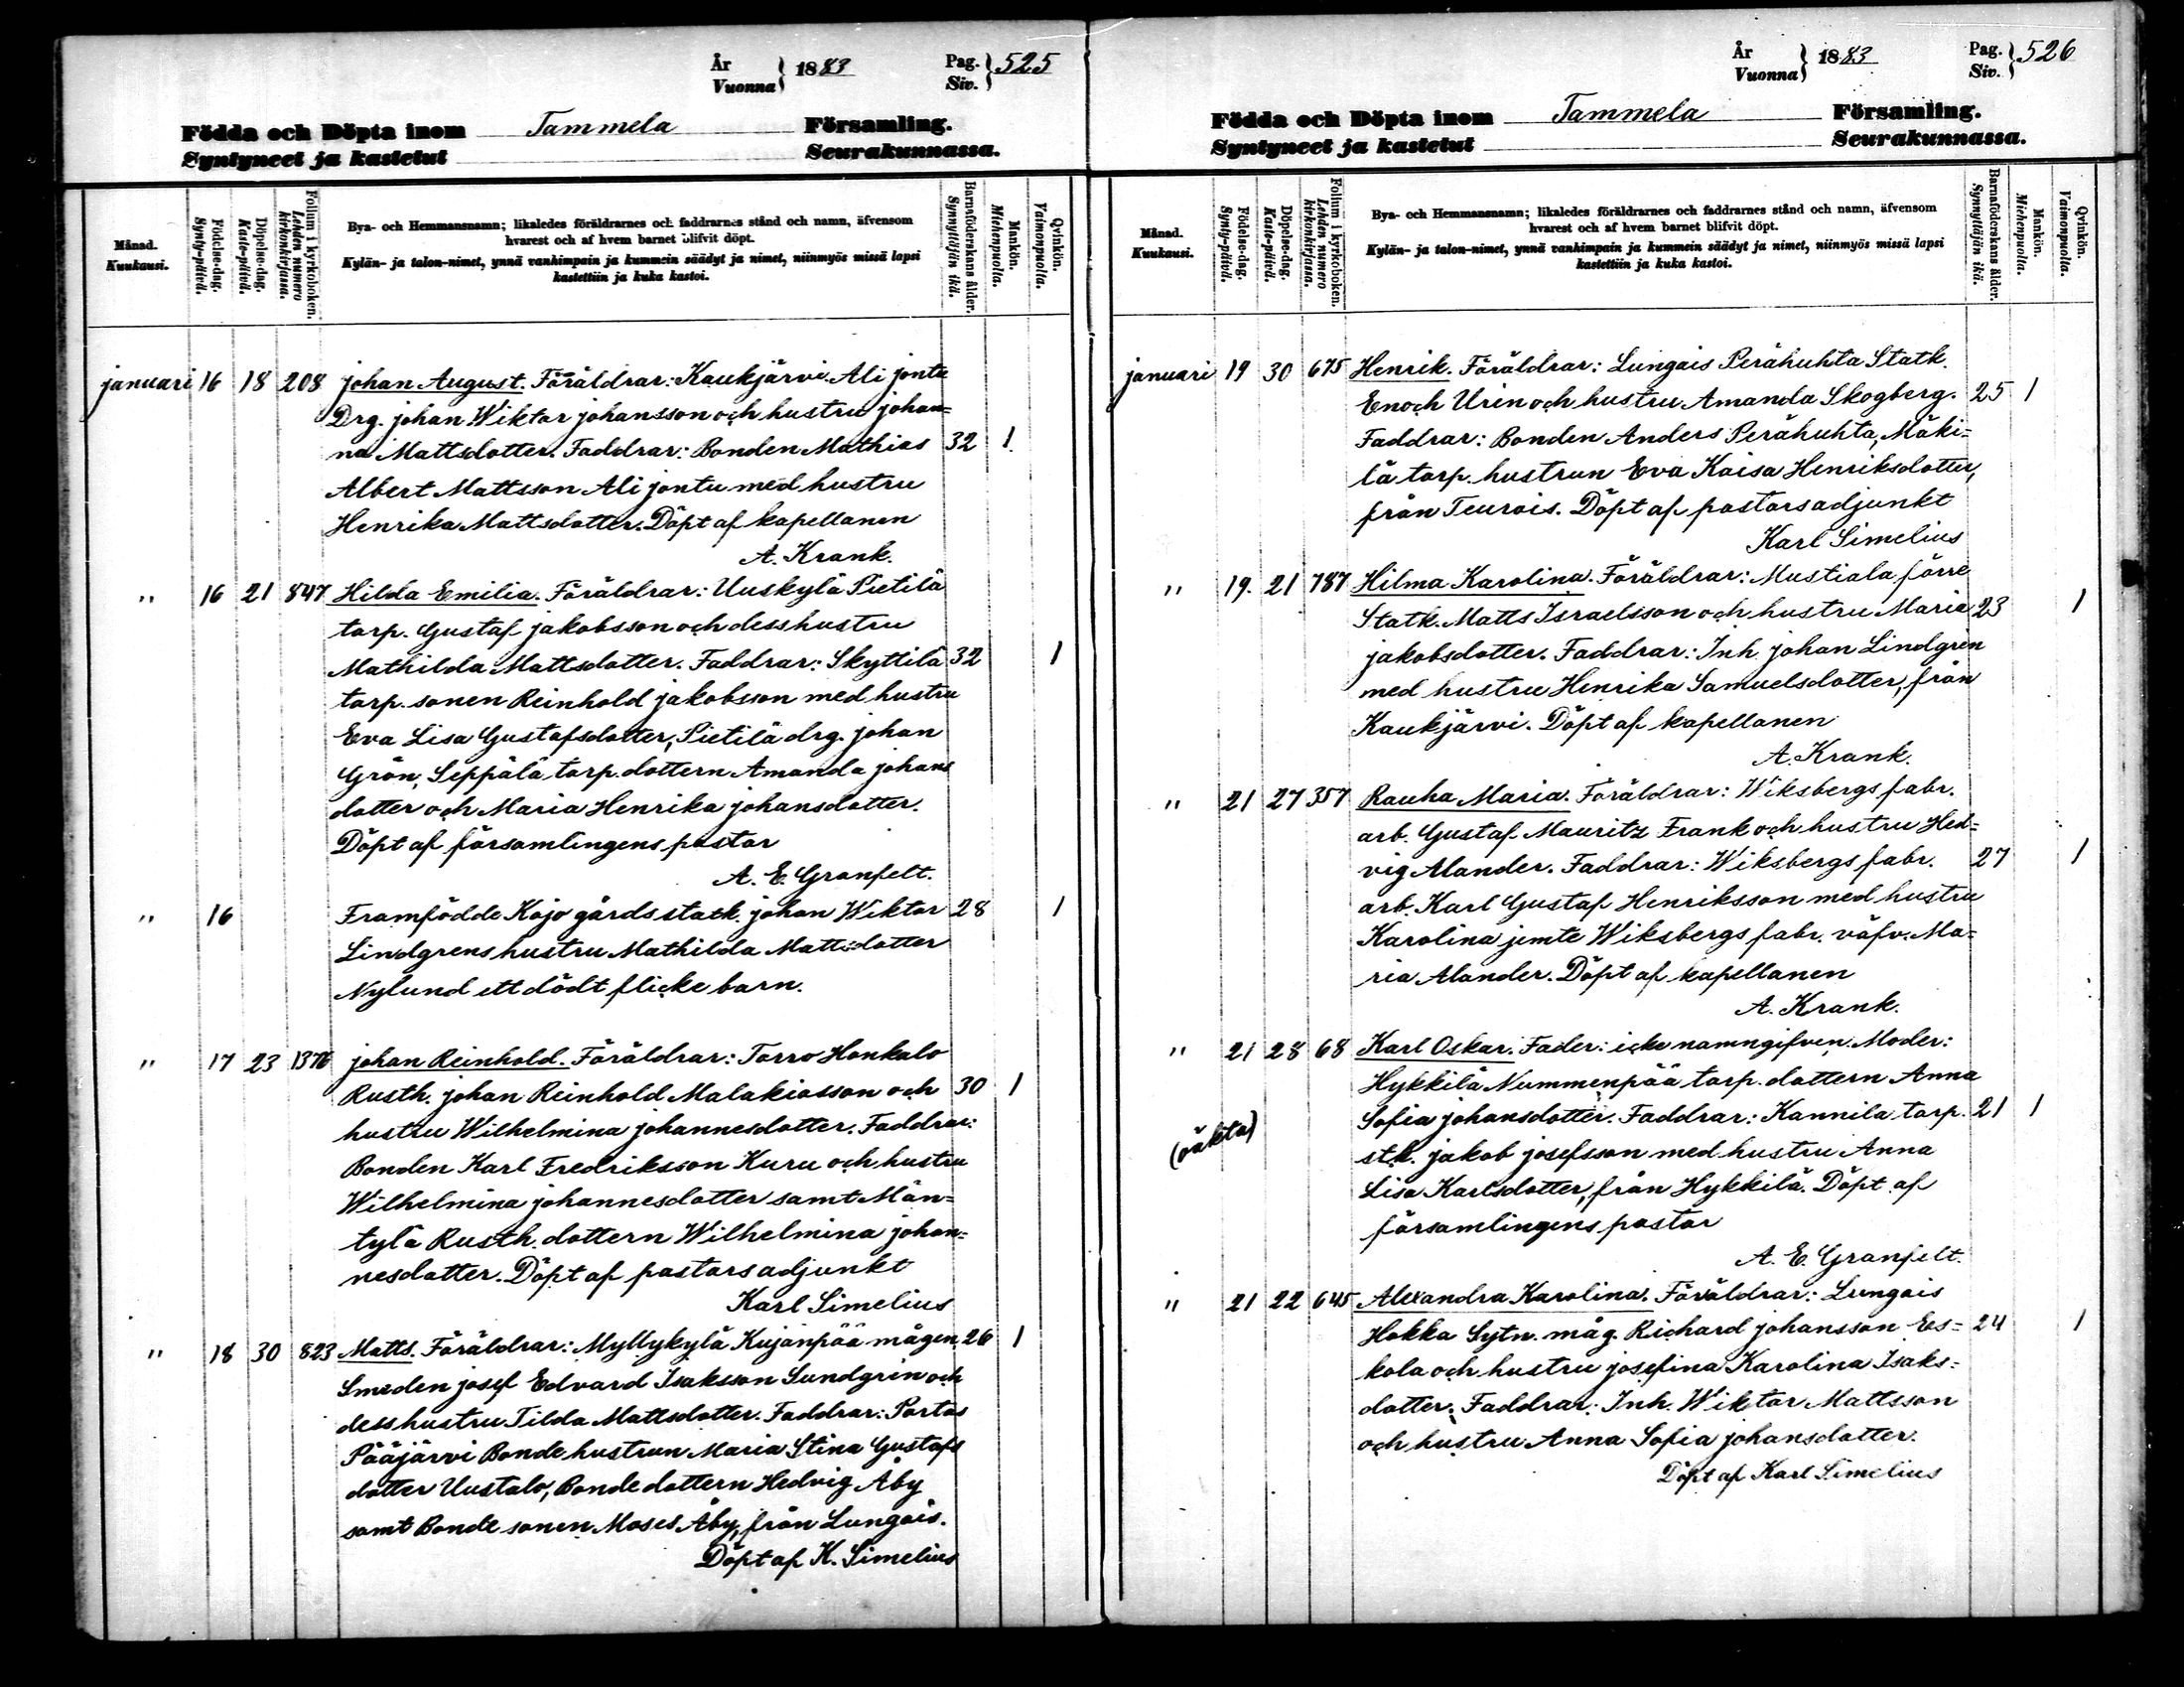 År
Vuonna } 1883 Pag.
Siv. } 525
Födda och Döpta inom Tammela Församling.
Syntyneet ja kastetut Seurakunnassa.
Månad.
Kuukausi.
Födelse-dag.
Synty-päivä.
Döpelse-dag.
Kaste-päivä.
Folium i kyrkoboken.
Lehden numero
kirkonkirjassa.
Bya- och Hemmansnamn; likaledes föräldrarnes och faddrarnes stånd och namn, äfvensom
hvarest och af hvem barnet blifvit döpt.
Kylän- ja talon-nimet, ynnä vanhimpain ja kummein säädyt ja nimet, niinmyös missä lapsi
kastettiin ja kuka kastoi.
Barnaföderskans ålder.
Synnyttäjän ikä.
Mankön.
Miehenpuolta.
Qvinkön.
Vaimonpuolta.
januari 16 18 208 johan August. Föräldrar: Kaukjärvi Ali jontu
Drg. johan Wiktor johansson och hustru johan=
na Mattsdotter. Faddrar: Bonden Mathias 32 1
Albert Mattsson Ali jontu med hustru
Henrika Mattsdotter. Döpt af kapellanen
A. Krank.
" 16 21 847 Hilda Emilia. Föräldrar: Uuskylä Pietilä
torp. Gustaf jakobsson och dess hustru
Mathilda Mattsdotter. Faddrar: Skyttilä 32 1
torp. sonen Reinhold jakobsson med hustru
Eva Lisa Gustafsdotter, Pietilä drg. johan
Grön, Seppälä torp. dottern Amanda johans
dotter och Maria Henrika johansdotter.
Döpt af församlingens pastor
A. E. Granfelt.
" 16 Framfödde Kojo gårds statk. johan Wiktor 28 1
Lindgrens hustru Mathilda Mattsdotter
Nylund ett dödt flicke barn.
" 17 23 1376 johan Reinhold. Föräldrar: Torro Honkalo
Rusth. johan Reinhold Malakiasson och 30 1
hustru Wilhelmina johannesdotter. Faddrar:
Bonden Karl Fredriksson Kuru och hustru
Wilhelmina johannesdotter samt Män=
tylä Rusth. dottern Wilhelmina johan=
nesdotter. Döpt af pastorsadjunkt
Karl Simelius
" 18 30 823 Matts. Föräldrar: Myllykylä Kujanpää mågen 26 1
Smeden josef Edvard Isaksson Sundgrén och
dess hustru Tilda Mattsdotter. Faddrar: Portas
Pääjärvi Bonde hustrun Maria Stina Gustafs
dotter Uustalo, Bonde dottern Hedvig Åby
samt Bonde sonen Moses Åby, från Lungois.
Döpt af K. Simelius
År
Vuonna } 1883 Pag.
Siv. } 526
Födda och Döpta inom Tammela Församling.
Syntyneet ja kastetut Seurakunnassa.
Månad.
Kuukausi.
Födelse-dag.
Synty-päivä.
Döpelse-dag.
Kaste-päivä.
Folium i kyrkoboken.
Lehden numero
kirkonkirjassa.
Bya- och Hemmansnamn; likaledes föräldrarnes och faddrarnes stånd och namn, äfvensom
hvarest och af hvem barnet blifvit döpt.
Kylän- ja talon-nimet, ynnä vanhimpain ja kummein säädyt ja nimet, niinmyös missä lapsi
kastettiin ja kuka kastoi.
Barnaföderskans ålder.
Synnyttäjän ikä.
Mankön.
Miehenpuolta.
Qvinkön.
Vaimonpuolta.
januari 19 30 675 Henrik. Föräldrar: Lungois Perähuhta Statk.
Enoch Urin och hustru Amanda Skogberg. 25 1
Faddrar: Bonden Anders Perähuhta, Mäki=
lä torp. hustrun Eva Kaisa Henriksdotter,
från Teurois. Döpt af pastorsadjunkt
Karl Simelius
" 19. 21 787 Hilma Karolina. Föräldrar: Mustiala förre
Statk. Matts Israelsson och hustru Maria 23 1
jakobsdotter. Faddrar: Inh. johan Lindgrén
med hustru Henrika Samuelsdotter, från
Kaukjärvi. Döpt af kapellanen
A. Krank.
" 21 27 357 Rauha Maria. Föräldrar: Wiksbergs fabr.
arb. Gustaf Mauritz Frank och hustru Hed=
vig Alander. Faddrar: Wiksbergs fabr. 27 1
arb. Karl Gustaf Henriksson med hustru
Karolina jemte Wiksbergs fabr. väfv. Ma=
ria Alander. Döpt af kapellanen
A. Krank.
" 21 28 68 Karl Oskar. Fader: icke namngifven. Moder:
Hykkilä Nummenpää torp. dottern Anna
(oäkta) Sofia johansdotter. Faddrar: Kannila torp. 21 1
st.k. jakob josefsson med hustru Anna
Lisa Karlsdotter, från Hykkilä. Döpt af
församlingens pastor
A. E. Granfelt.
" 21 22 645 Alexandra Karolina. Föräldrar: Lungois
Hokka Sytn. måg. Richard johansson Es= 24 1
kola och hustru josefina Karolina Isaks=
dotter. Faddrar: Inh. Wiktor Mattsson
och hustru Anna Sofia johansdotter.
Döpt af Karl Simelius